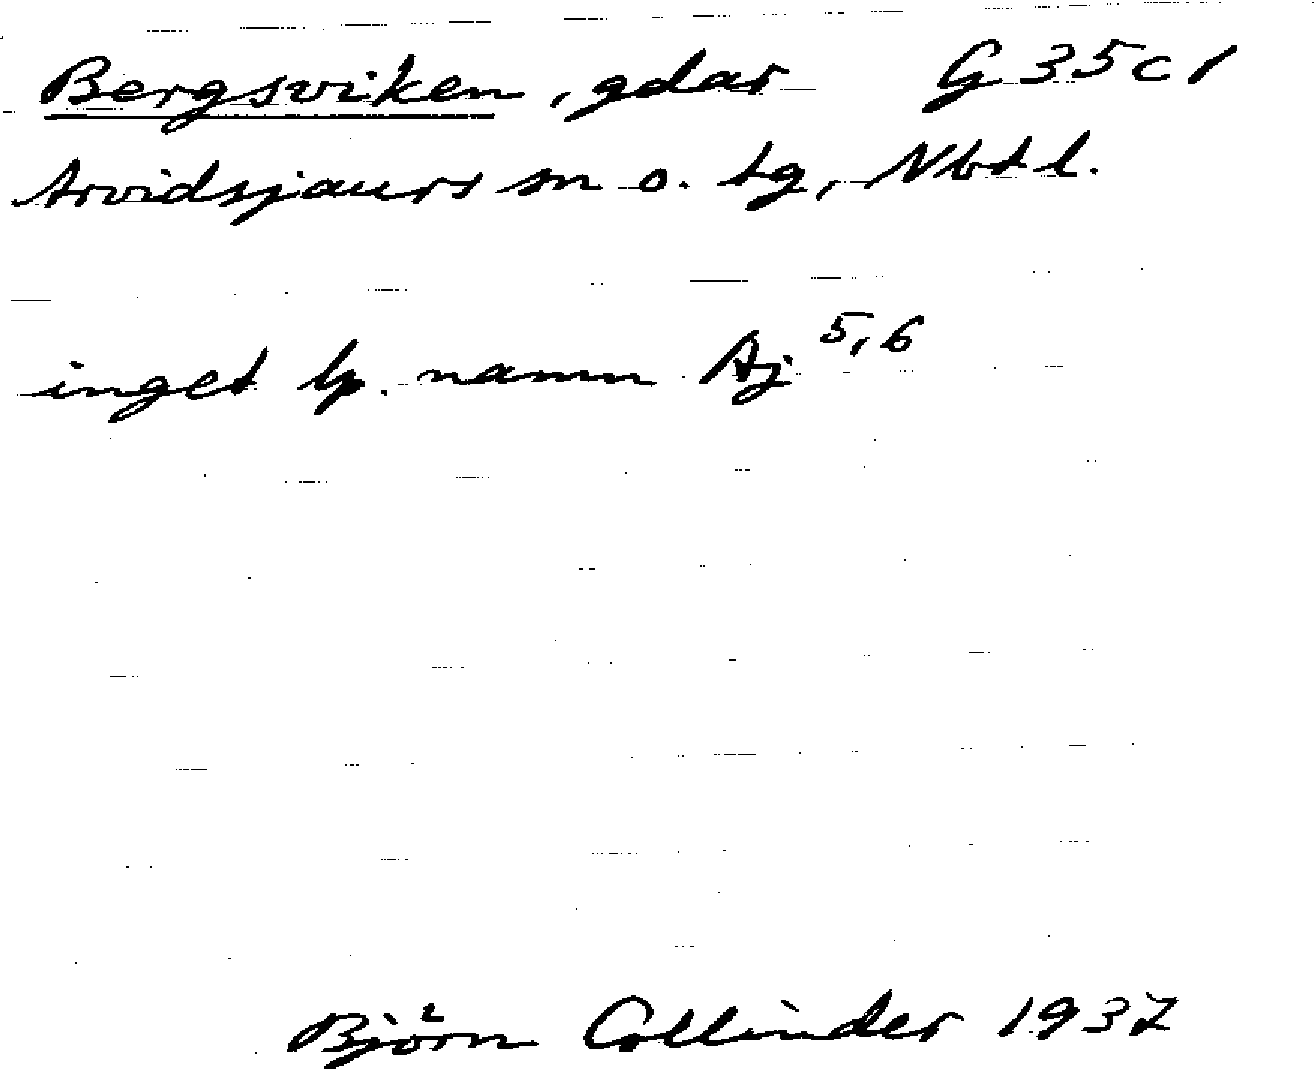 Bergsviken, gdar G 35 c 1
Arvidsjaurs sn o. tg, Nbtl.
inget lp. namn Aj 5,6
Björn Collinder 1937